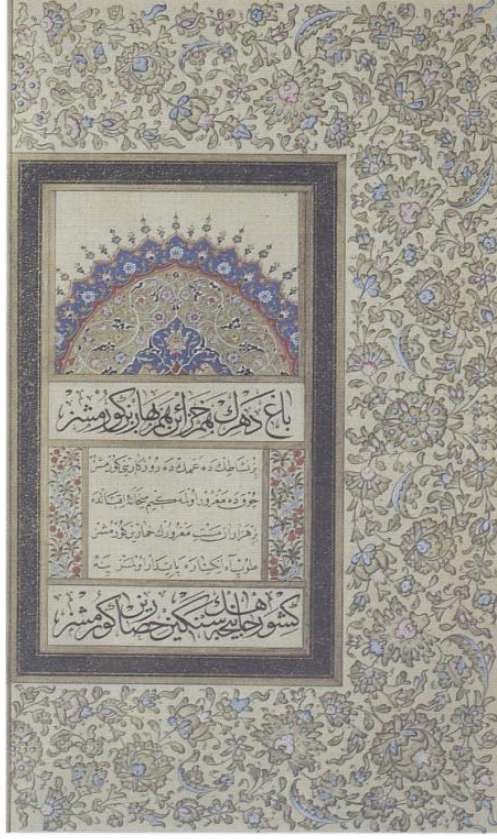 باغ دهرك هم خزانن هم بهارن كورمشز
بز نشاطك ده غمك ده روزكارن كورمشز
چوق ده مغرور اولمه كيم ميخانۀ اقبالده
بز هزاران مست مغرورك خمارن كورمشز
طوپ آه انكساره پايدار اولمز ينه
كشور جاهك نيجه سنگين حصارن كورمشز